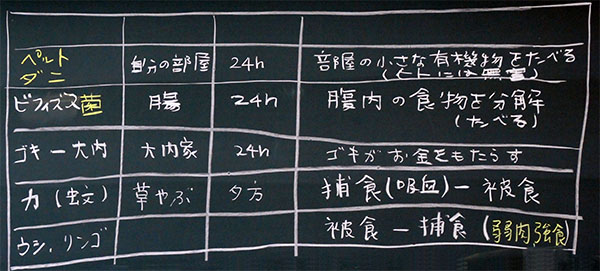 ペルト
ダニ
自分の部屋
24h
部屋の小さな有機物をたべる
(ヒトには無害)
ビフィズス菌
腸
24h
腹内の食物を分解
(たべる)
ゴキー大内
大内家
24h
ゴキがお金をもたらす
カ(蚊)
草やぶ
夕方
捕食(吸血)ー被食
ウシ、リンゴ
被食ー捕食(弱肉強食)